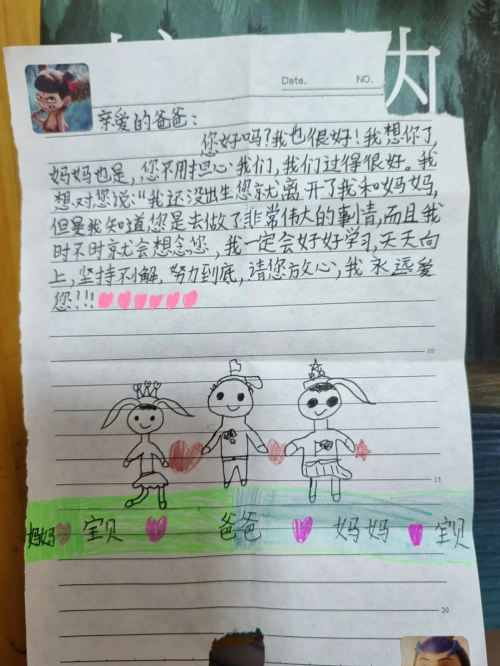 Date. NO.
亲爱的爸爸：
您好吗？我也很好！我想你了，
妈妈也是，您不用担心我们，我们过得很好。我
想对您说：“我还没出生您就离开了我和妈妈，
但是我知道您是去做了非常伟大的事情，而且我
时不时就会想念您，我一定会好好学习，天天向
上，坚持不懈，努力到底，请您放心，我永远爱
您！！！
10
15
妈妈 宝贝 爸爸 妈妈 宝贝
20